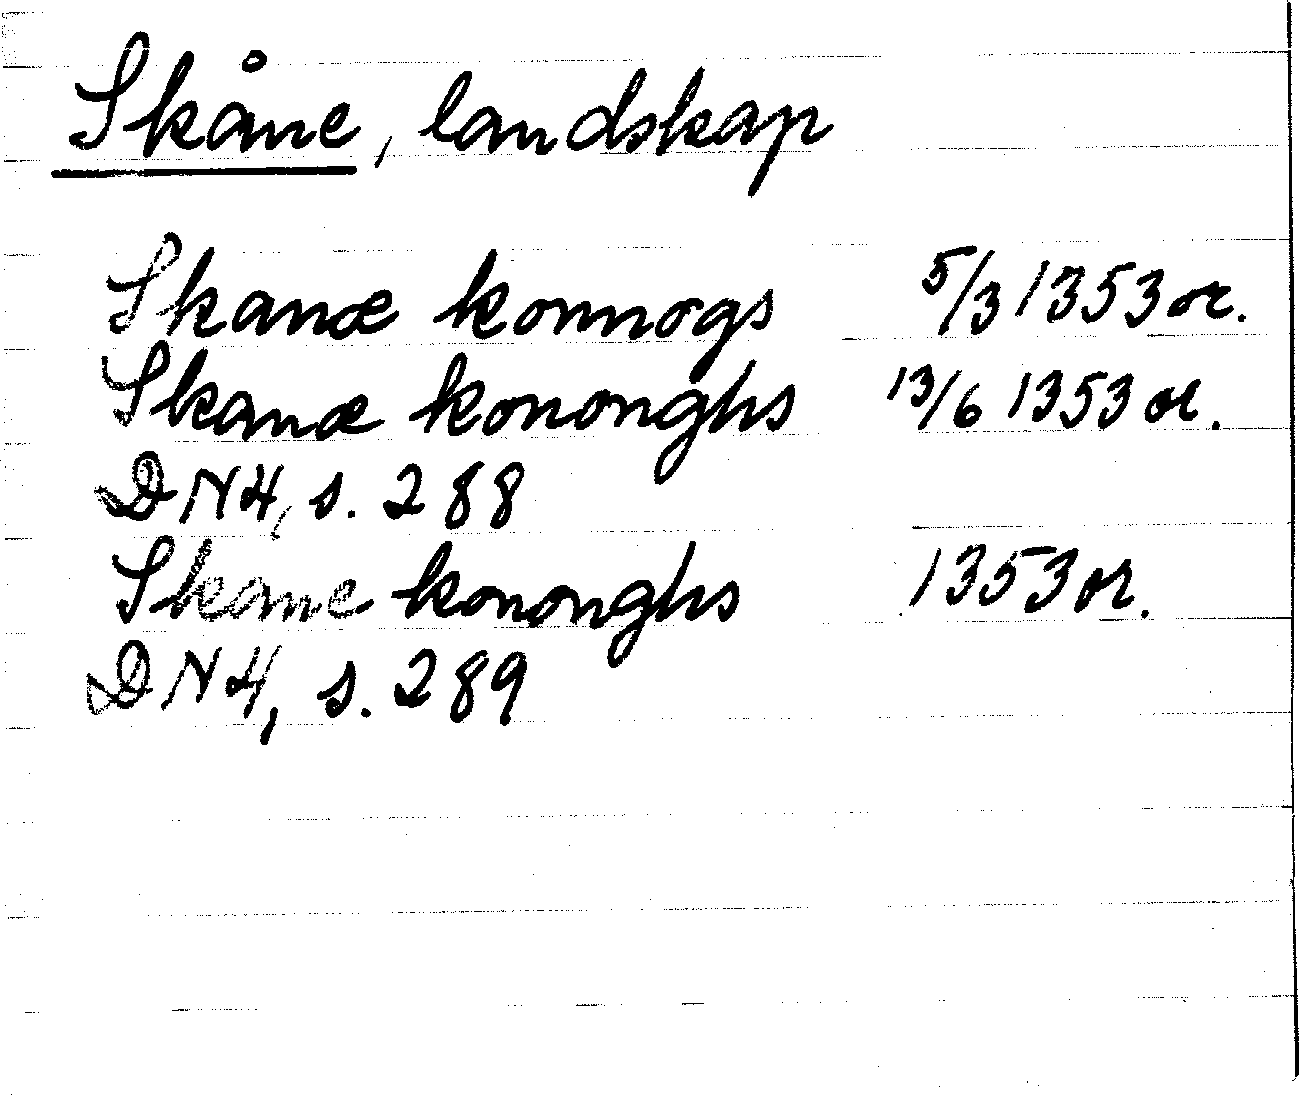 Skåne, landskap
Skanæ konnogs 5/3 1353 or.
Skanæ kononghs 13/6 1353 or.
DN4, s. 288
Skane kononghs 1353 or.
DN4, s. 289